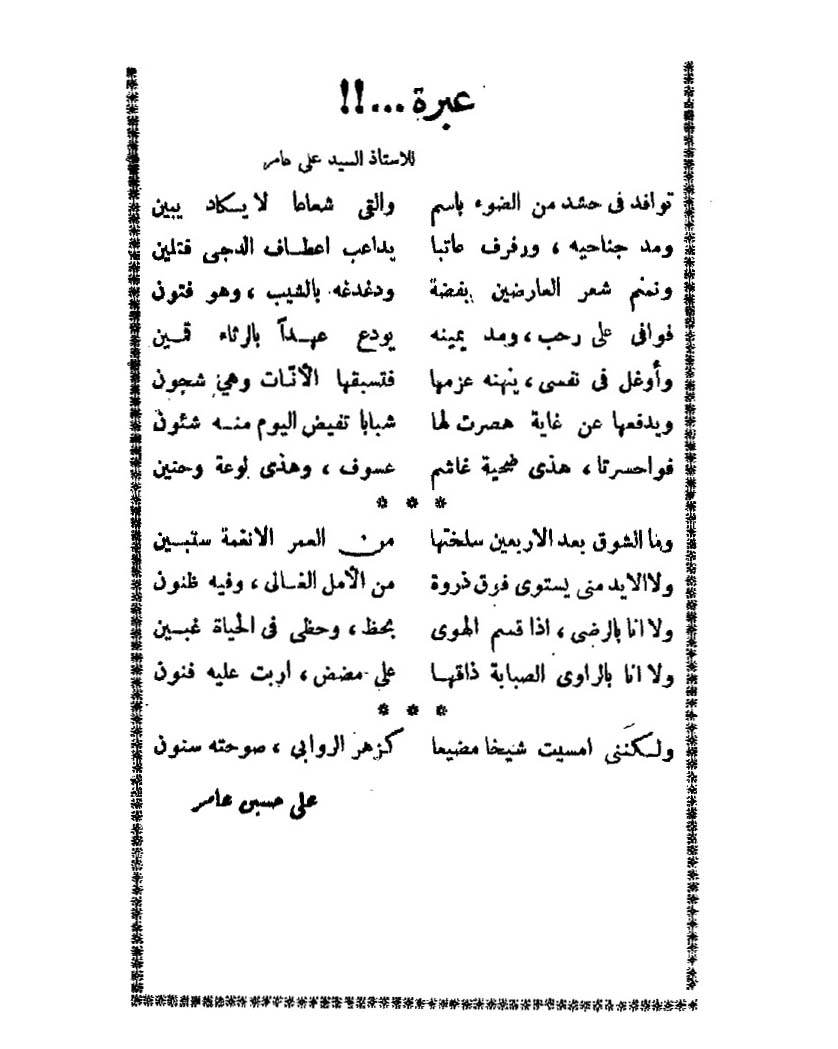 عبرة...!!
للاستاذ السيد على عامر
توافد فى حشد من الضوء باسم والتى شعاعا لا يسكاد يبين
ومد جناحيه ، ورفرف عاتبا يداعب اعطاف الدجى فتلين
ونمنم شعر العارضين بفضة ودغدغه بالشيب ، وهو فتون
فوافى على رحب ، ومد يمينه يودع عهداً بالرثاء قمين
وأوغل فى نفسى ، ينهنه عزمها فتسبقها الأنّات وهي شجون
ويدفعها عن غاية هصرت لها شبابا تفيض اليوم منه شئون
فواحسرتا ، هذى ضحية غاشم عسوف ، وهذى لوعة وحنين
* * *
وما الشوق بعد الاربعين سلختها من العمر الانقمة ستبين
ولا الايد منى يستوى فوق ذروة من الأمل الغالى ، وفيه ظنون
ولا انا بالرضى ، اذا قسم الهوى بحظ ، وحظى فى الحياة غبين
ولا انا بالراوى الصبابة ذاقها على مضض ، اربت عليه فنون
* * *
ولكننى امسيت شيخا مضيعا كزهر الروابى ، صوحته سنون
على حسين عامر